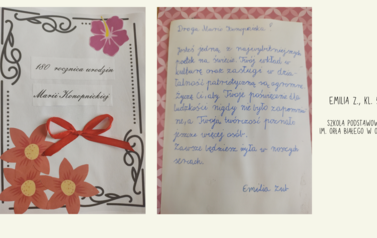 180 rocznica urodzin
Marii Konopnickiej
Droga Mario Konopnicka!
Jesteś jedną z najwybitniejszych
poetek na świecie. Twój wkład w
kulturę oraz zasługi w
patriotyczną są ogromne.
Twoje
ludzkości nigdy nie było
a Twoją twórczość poznało
jeszcze więcej osób.
Zawsze będziesz żyła w naszych
sercach.
Emilia
EMILIA Z., KL.
SZKOŁA
IM. ORŁA BIAŁEGO W